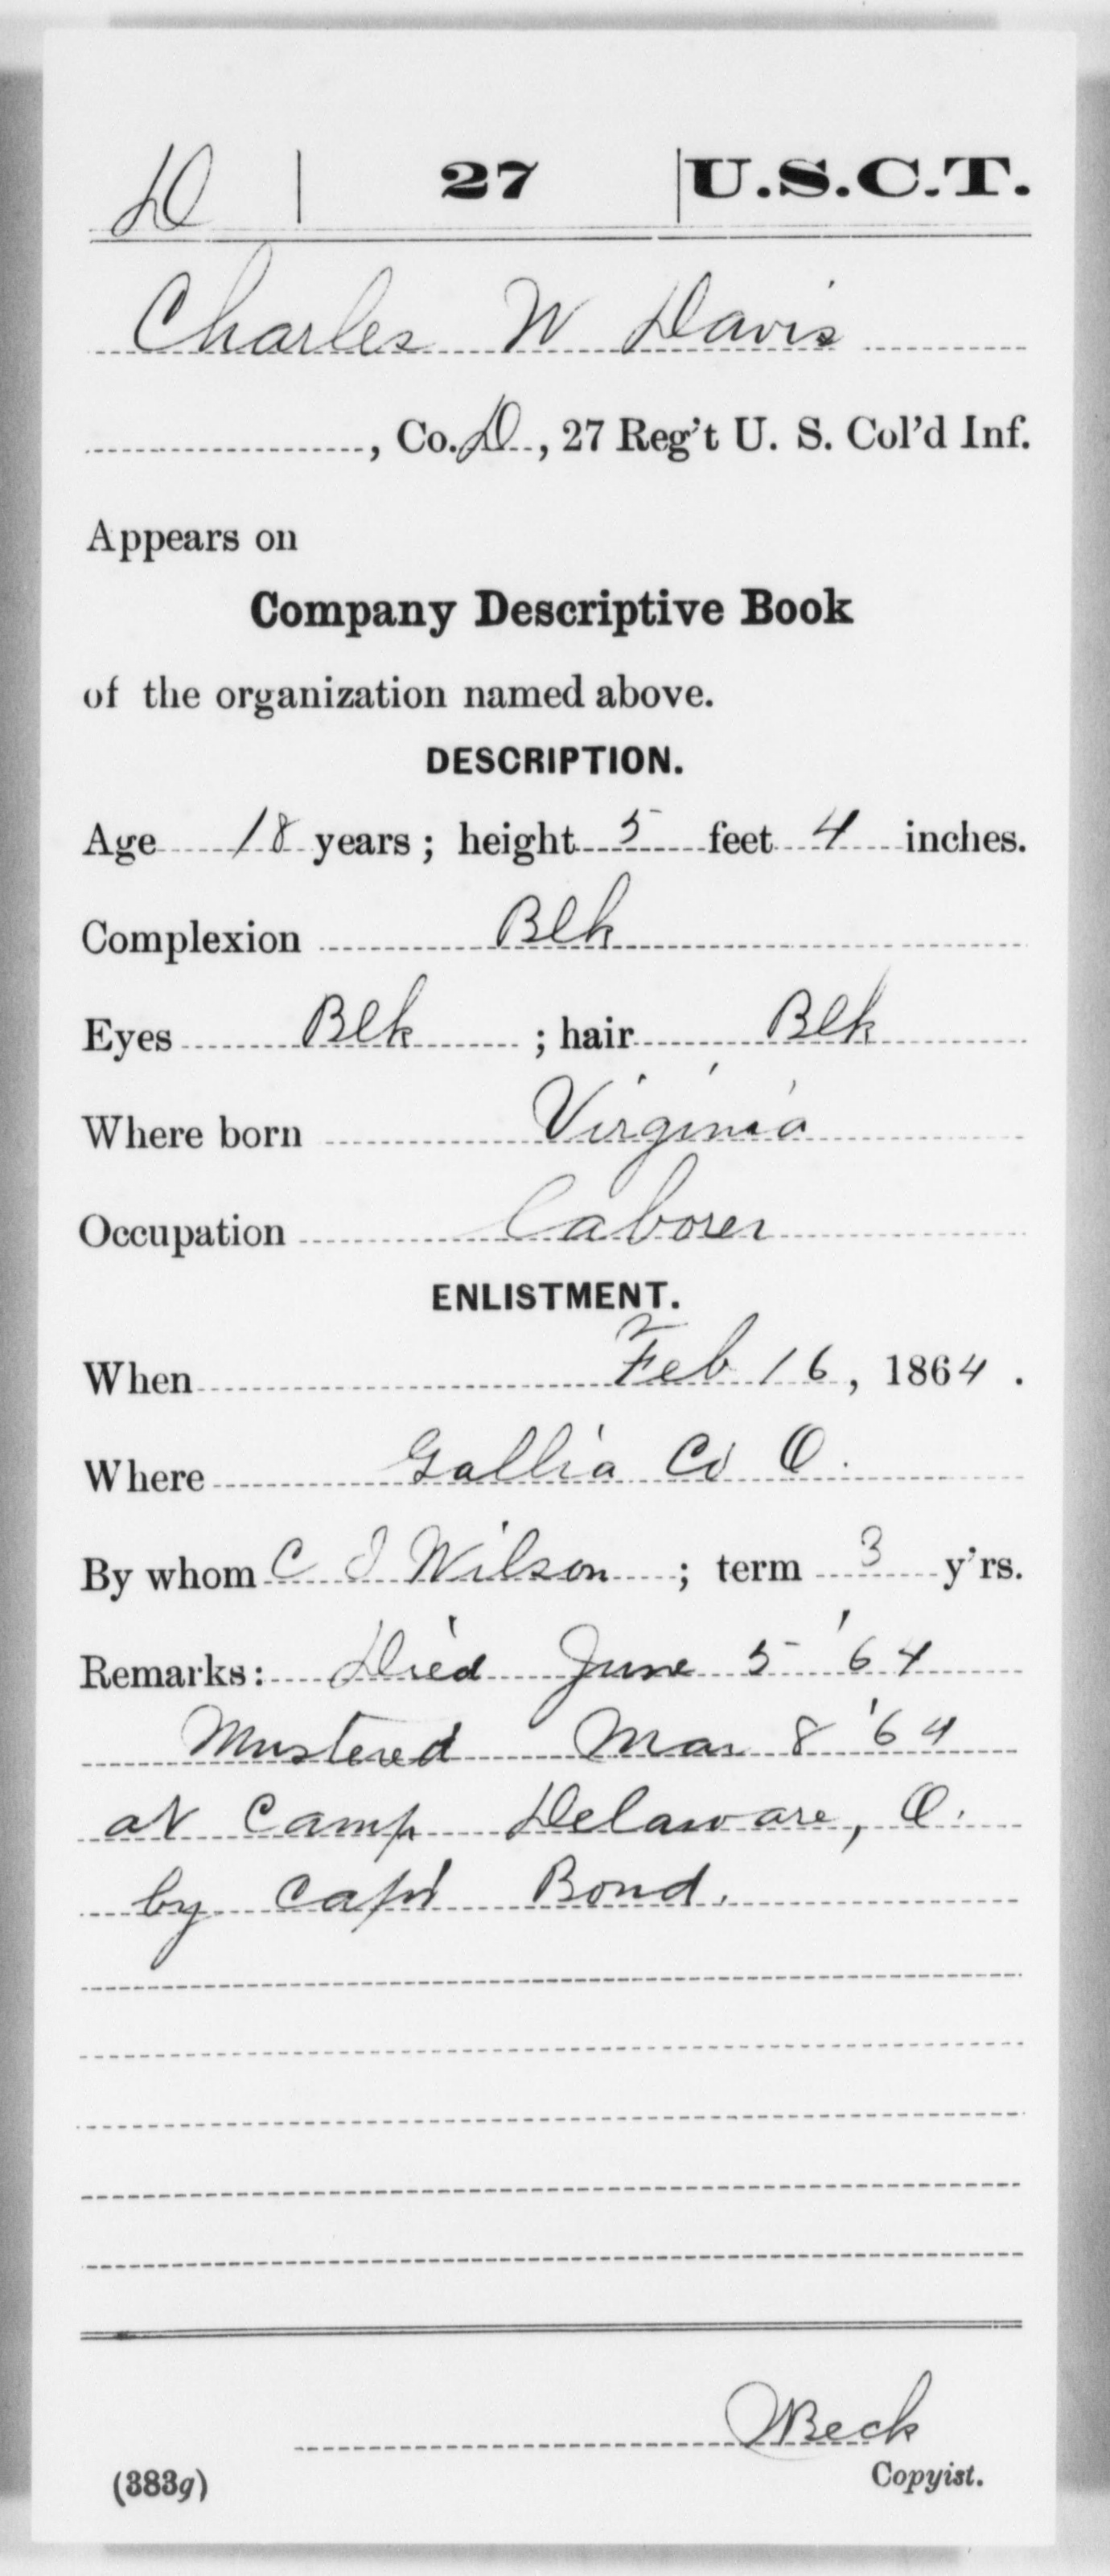 D | 27 | U.S.C.T.
Charles W Davis
, Co. D, 27 Reg't U. S. Col'd Inf.
Appears on
Company Descriptive Book
of the organization named above.
DESCRIPTION.
Age 18 years; height 5 feet 4 inches.
Complexion Blk
Eyes Blk ; hair Blk
Where born Virginia
Occupation Laborer
ENLISTMENT.
When Feb 16, 1864.
Where Gallia Co O.
By whom C I Wilson ; term 3 y'rs.
Remarks: Died June 5 '64
Mustered Mar 8 '64
at Camp Delaware, O.
by Capt Bond.
Beck
(383g) Copyist.